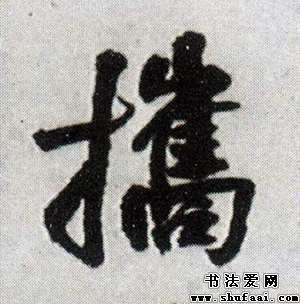 攜
书法爱网
www.shufaai.com